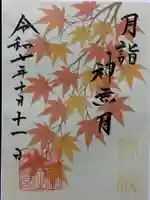 月詣
神無月
令和七年十月十一日